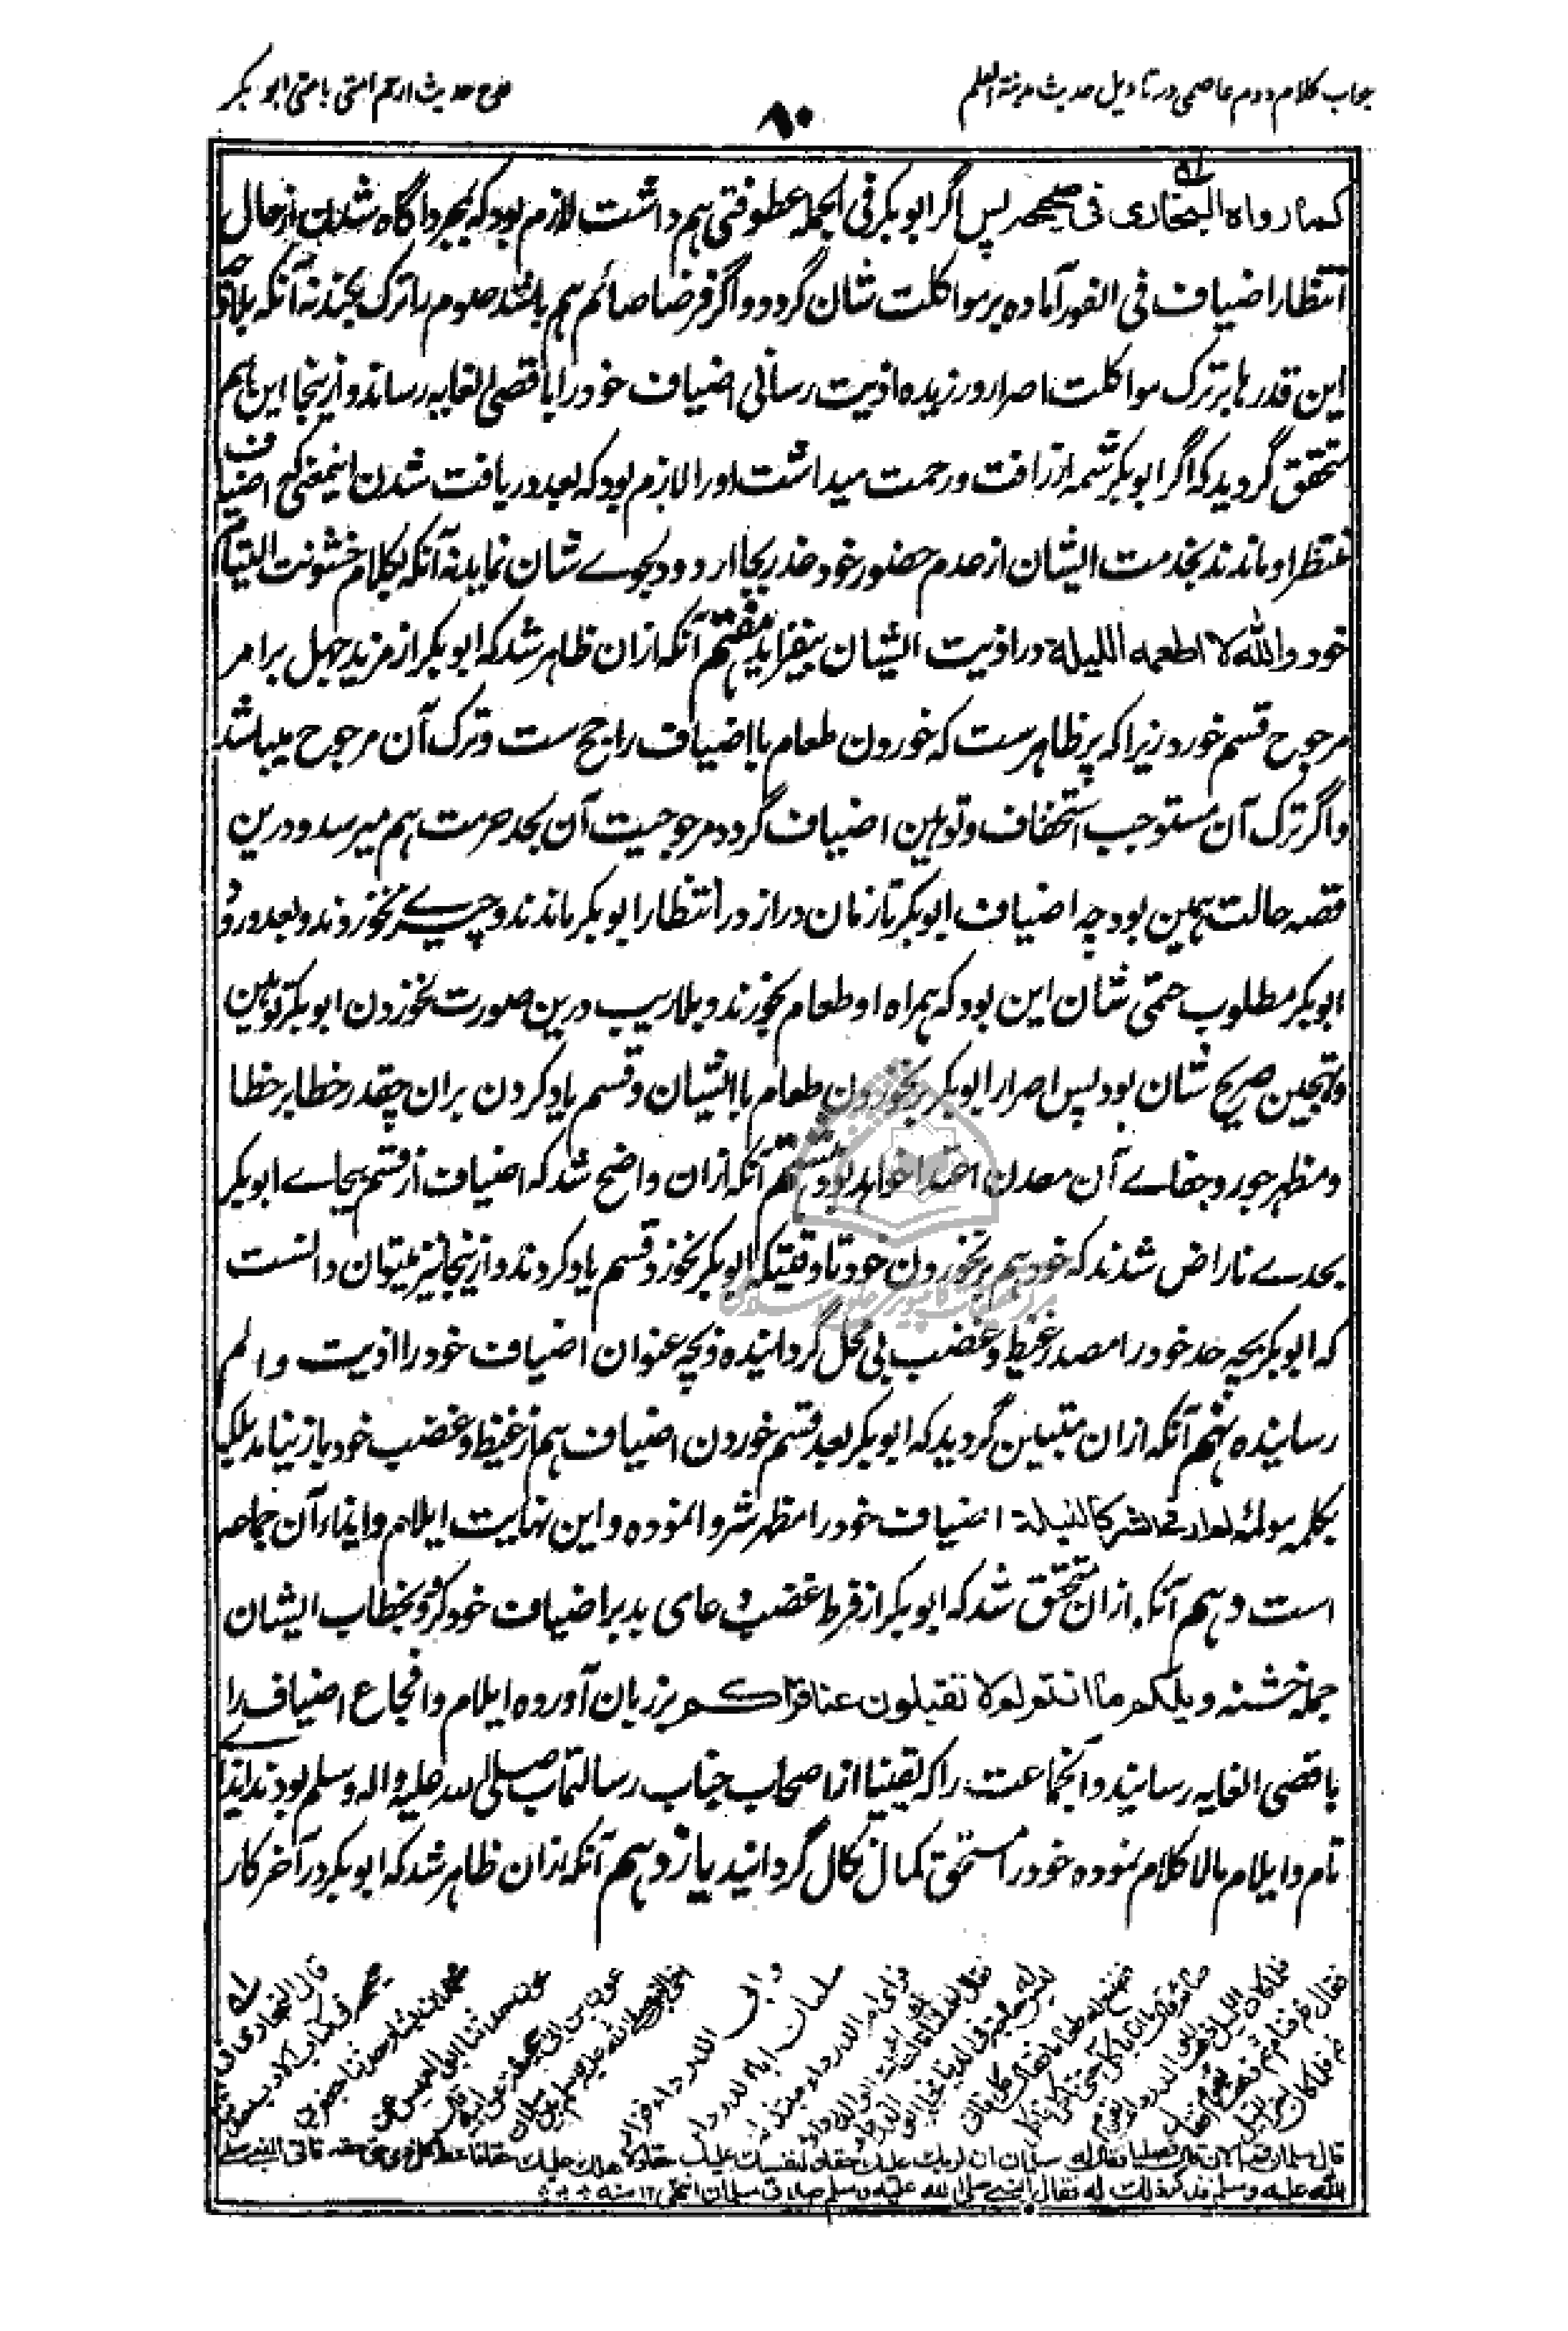 جواب کلام دوم عاصمی در تاویل حدیث مدینة العلم
۸۰
وضع حدیث ارحم امتی بامتی ابو بکر
کما رواه البخاری فی صحیحه پس اگر ابو بکر فی الجمله عطوفتی هم داشت لازم بود که بمجرد آگاه شدن از حال
انتظار اضیاف فی الفور آماده بر مواکلت شان گردد و اگر فرضا صائم هم باشد صوم را ترک بکند نه آنکه
این قدرها بر ترک مواکلت اصرار ورزیده اذیت رسانی اضیاف خود را باقصی الغایه رساند و ازینجا این هم
متحقق گردید که اگر ابو بکر شمه از رافت و رحمت میداشت او را لازم بود که بعد دریافت شدن اینمعنی که اضیاف
منتظر او ماندند بخدمت ایشان از عدم حضور خود عذر بجا آرد و دلجوے شان نماید نه آنکه بکلام خشونت التیام
خود والله لا اطعمه اللیلة در اذیت ایشان بیفزاید هفتم آنکه ازان ظاهر شد که ابو بکر از مزید جهل بر امر
مرجوح قسم خورد زیرا که پر ظاهرست که خوردن طعام با اضیاف راجح ست و ترک آن مرجوح میباشد
و اگر ترک آن مستوجب استخفاف و توهین اضیاف گردد مرجوحیت آن بحد حرمت هم میرسد و درین
قصه حالت همین بود چه اضیاف ابو بکر تا زمان دراز در انتظار ابو بکر ماندند و چیزے نخوردند و بعد ورود
ابو بکر مطلوب حتمی شان این بود که همراه او طعام بخورند و بلاریب درین صورت نخوردن ابو بکر توهین
و تهجین صریح شان بود پس اصرار ابو بکر بر نخوردن طعام با ایشان و قسم یاد کردن بران چقدر خطا بر خطا
و مظهر جور و جفاے آن معدن خواهد بود هشتم آنکه ازان واضح شد که اضیاف از قسم بیجاے ابو بکر
بحدے ناراض شدند که خود هم بر نخوردن خود تا وقتیکه ابو بکر نخورد قسم یاد کردند و ازینجا نیز میتوان دانست
که ابو بکر بچه حد خود را مصدر غیظ و غضب بی محل گردانیده و بچه عنوان اضیاف خود را اذیت و الم
رسانیده نهم آنکه ازان متبین گردید که ابو بکر بعد قسم خوردن اضیاف هم از غیظ و غضب خود باز نیامد بلکه
بکلمه مولمه لم ار فی الشر کاللیلة اضیاف خود را مظهر شر وانموده و این نهایت ایلام و ایذاء آن جماعه
است دهم آنکه ازان متحقق شد که ابو بکر از فرط غضب دعای بد بر اضیاف خود کرد و بخطاب ایشان
جمله خشنه ویلکم ما انتم لم لا تقبلون عنا قراکم بر زبان آورده ایلام و افجاع اضیاف را
باقصی الغایه رسانید و آنجماعت را که یقینا از اصحاب جناب رسالتماب صلی الله علیه و اله و سلم بودند ایذاے
تام و ایلام مالا کلام نموده خود را مستحق کمال نکال گردانید یازدهم آنکه ازان ظاهر شد که ابو بکر در آخر کار
قال البخاری فی
صحیحه فی کتاب الادب
محمد بن بشار حدثنا جعفر بن
عون حدثنا ابو العمیس عن
عون بن ابی جحیفة عن ابیه قال
اخی النبی صلی الله علیه وسلم بین سلمان
و ابی الدرداء فزار
سلمان ابا الدرداء
فرای ام الدرداء متبذلة
فقال لها
لیس له حاجة فی الدنیا فجاء ابو الدرداء
فصنع له طعاما فقال کل فانی
صائم قال ما انا باکل حتی تاکل فاکل
فلما کان اللیل ذهب ابو الدرداء یقوم
فقال نم فنام ثم ذهب یقوم فقال
نم فلما کان اخر اللیل
قال سلمان قم الان قال فصلیا فقال له سلمان ان لربك علیك حقا و لنفسك علیك حقا و لاهلك علیك حقا فاعط کل ذی حق حقه فاتی النبی صلی
الله علیه وسلم فذکر ذلك له فقال النبی صلی الله علیه وسلم صدق سلمان انتهی ۱۲ منه